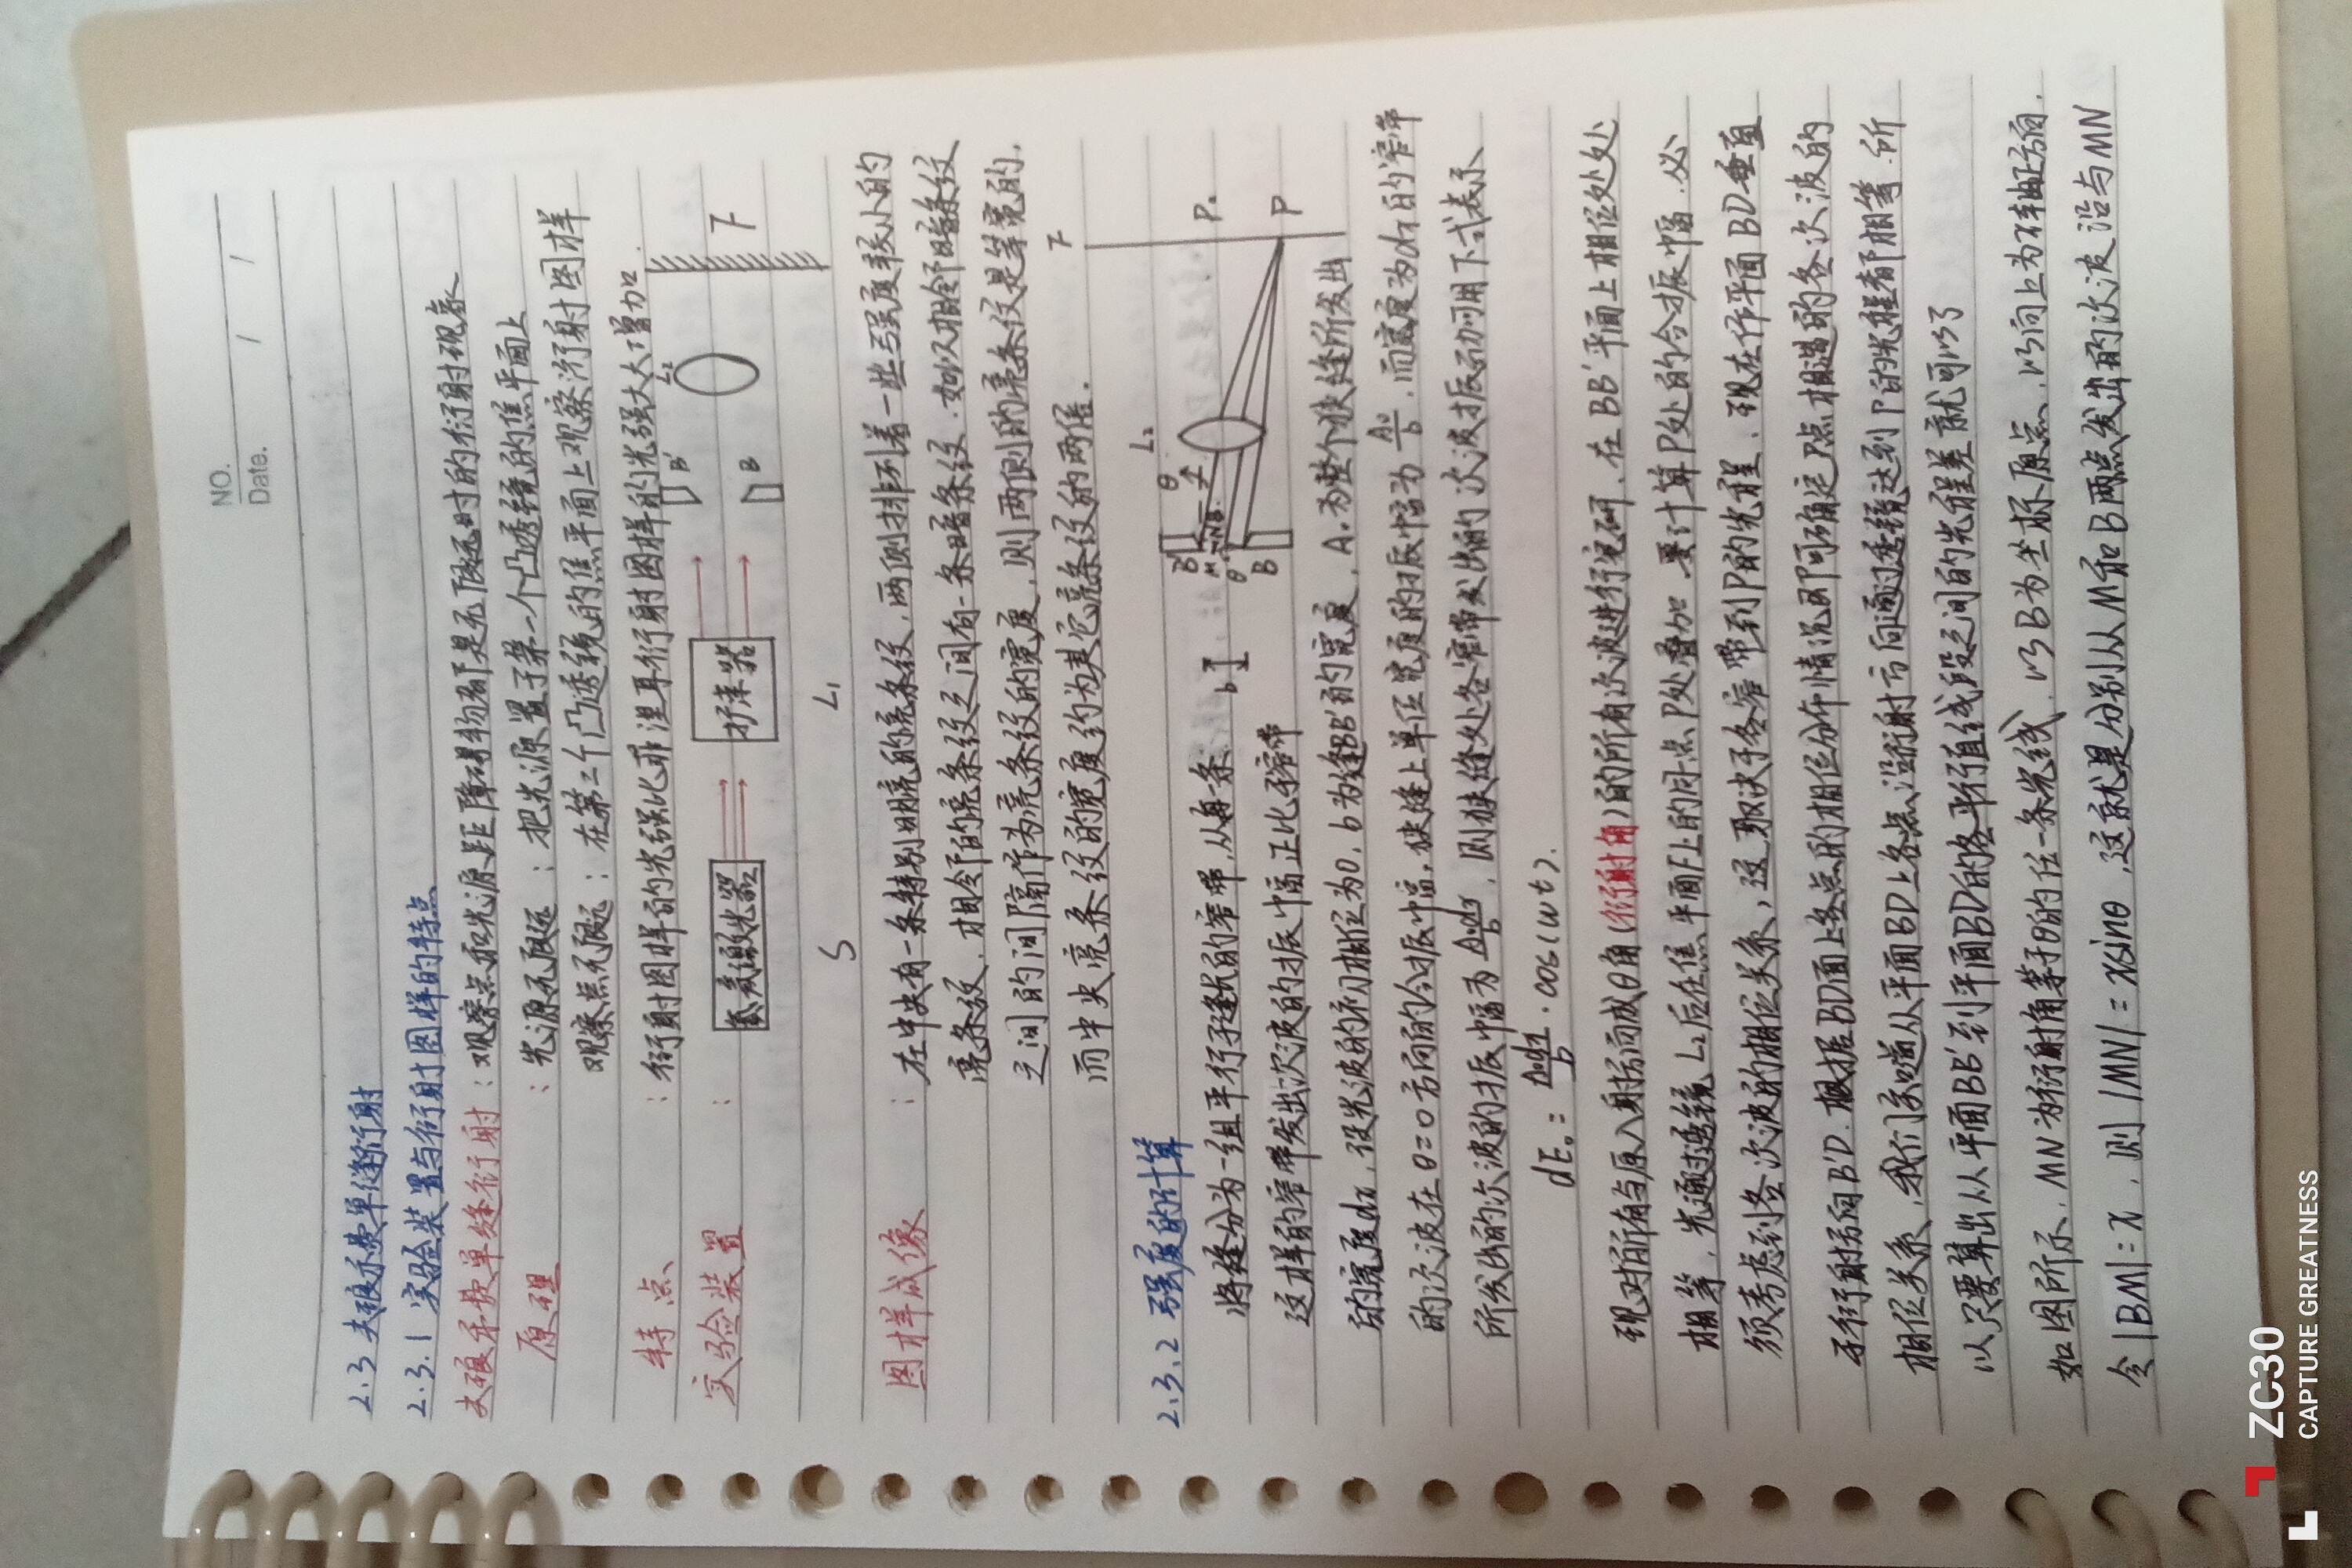 NO.
Date. / /
2.3 夫琅禾费单缝衍射
2.3.1 实验装置与衍射图样的特点
夫琅禾费单缝衍射：观察点和光源距障碍物都是无限远时的衍射现象
原理：光源无限远：把光源置于第一个凸透镜的焦平面上
观察点无限远：在第二个凸透镜的焦平面上观察衍射图样
特点：衍射图样的光强比菲涅耳衍射图样的光强大大增加.
实验装置：
氦氖激光器
扩束器
B'
B
L₂
F
S
L₁
图样成像：在中央有一条特别明亮的亮条纹，两侧排列着一些强度较小的
亮条纹，相令的亮条纹之间有一条暗条纹.如以相令阝暗条纹
之间的间隔作为亮条纹的宽度，则两侧的亮条纹是等宽的.
而中央亮条纹的宽度约为其它亮条纹的两倍.
F
2.3.2 强度的计算
L₂
B'
M
N
θ
θ
B
P₀
P
b
将缝分为一组平行于缝长的窄带，从每一条
这样的窄带发出次波的振幅正比于窄带
的宽度dx，设光波的初相位为0，b为缝BB'的宽度，A₀为整个狭缝所发出
的次波在θ=0方向的合振幅，狭缝上单位宽度的振幅为A₀/b，而宽度为dx的窄带
所发出的次波的振幅为A₀dx/b，则狭缝处各窄带发出的次波振动可用下式表示
dE₀ = A₀dx/b · cos(wt).
现对所有与原入射方向成θ角(衍射角)的所有次波进行研，在BB'平面上相位处处
相等，光通过透镜L₂后在焦平面F上的同一点P处叠加.要计算P处的合振幅.必
须考虑到各次波的相位关系，这取决于各窄带到P的光程.现在作平面BD垂直
于衍射方向B'D.根据BD面上各点的相位分布情况即可确定P点相遇的各次波的
相位关系，我们知道从平面BD上各点沿衍射方向通过透镜达到P的光程都相等.所
以只要算出从平面BB'到平面BD的各平行直线段之间的光程差就可以了
如图所示，MN为衍射角等于θ的任一条光线.以B为坐标原点，以向上为x轴正方向.
令|BM|=x，则|MN|=xsinθ，这就是分别从M和B两点发出的次波沿与MN
ZC30
CAPTURE GREATNESS